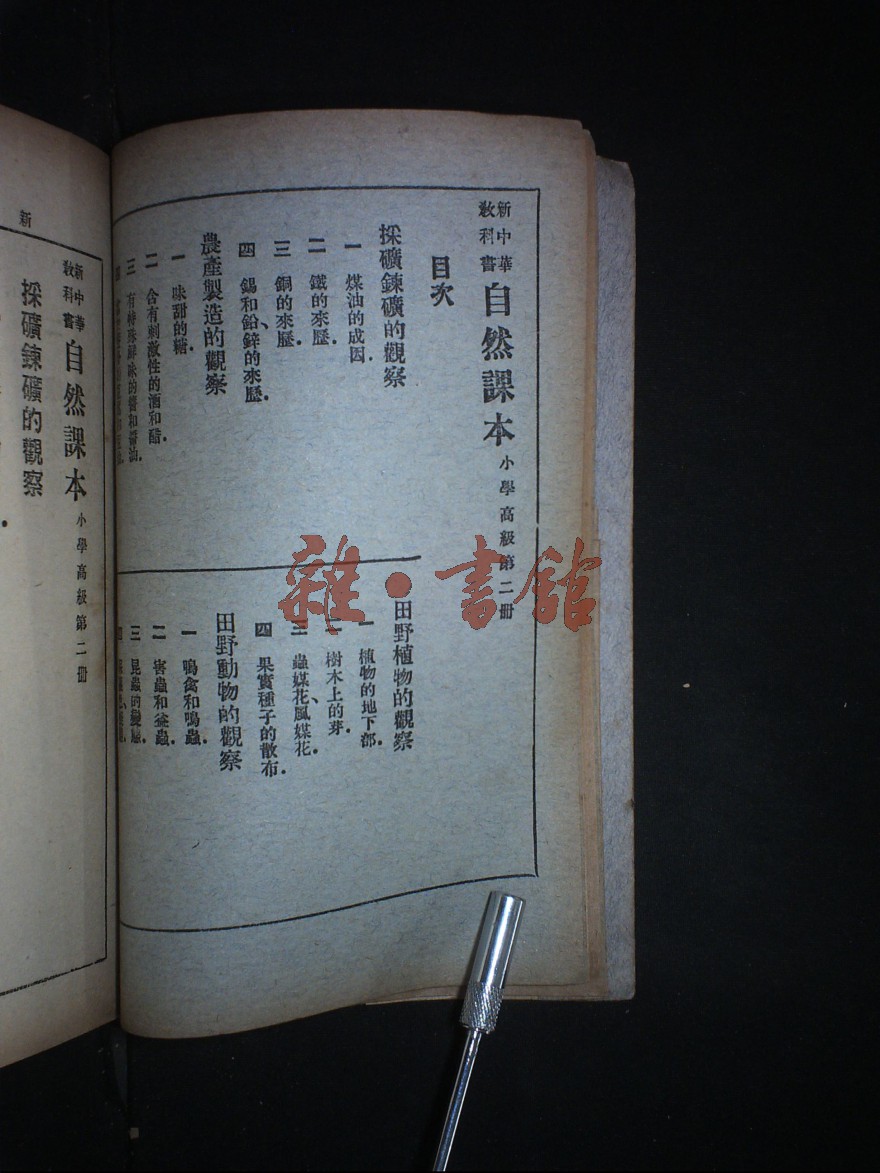 新中華
教科書
自然課本 小學高級第二冊
目次
採礦鍊礦的觀察
一 煤油的成因.
二 鐵的來歷.
三 銅的來歷.
四 錫和鉛、鋅的來歷.
農產製造的觀察
一 味甜的糖.
二 含有刺激性的酒和醋.
三 有特殊鮮味的醬和醬油.
田野植物的觀察
一 植物的地下部.
二 樹木上的芽.
三 蟲媒花、風媒花.
四 果實種子的散布.
田野動物的觀察
一 鳴禽和鳴蟲.
二 害蟲和益蟲.
三 昆蟲的變態.
四
雜·書館
新
新中華
教科書
自然課本 小學高級第二冊
採礦鍊礦的觀察